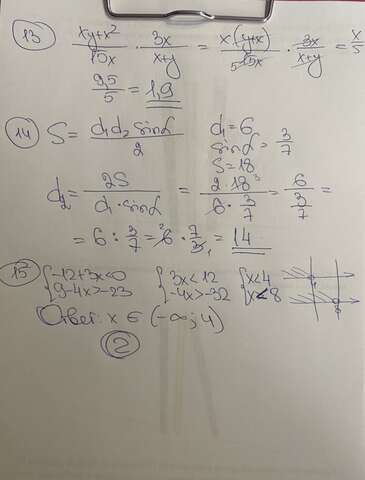 13) (xy+x²)/15x · 3x/(x+y) = x(y+x)/15x · 3x/(x+y) = x/5
9,5/5 = 1,9
14) S = d₁d₂ sinα / 2   d₁ = 6
sinα = 3/7
S = 18
d₂ = 2S/(d₁ · sinα) = 2 · 18/(6 · 3/7) = 6/(3/7) =
= 6 : 3/7 = 6 · 7/3 = 14
15) { -12+3x<0   { 3x<12   { x<4
9-4x>-23   -4x>-32   x<8
Ответ: x ∈ (-∞; 4)
2